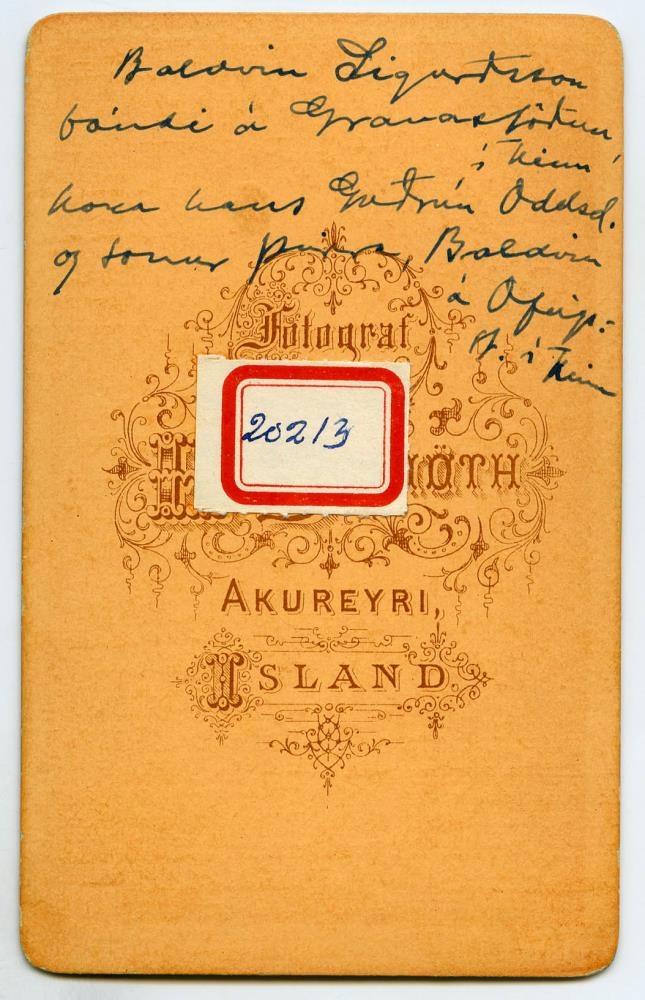 Baldvin Sigurðsson
bóndi á Granastöðum
í Kinn,
kona hans Guðrún Oddsd.
og sonur þeirra, Baldvin
á Ófeigs-
st. í Kinn
Fotograf
20213
AKUREYRI,
ISLAND